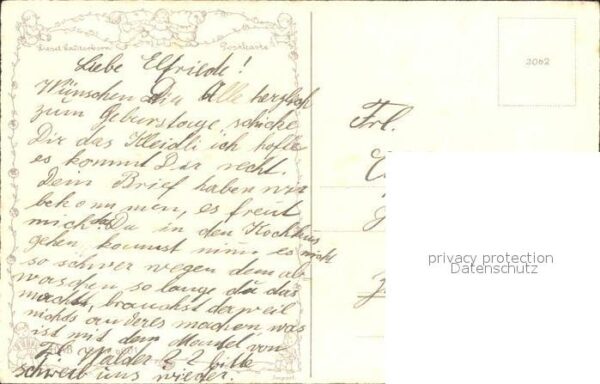 Liesel Lauterborn
Postkarte
3062
Liebe Elfriede!
Wünschen Dir Alle herzlich
zum Geburtstage, schicke
Dir das Kleidli ich hoffe
es kommt Dir recht.
Dein Brief haben wir
bekommen, es freut
mich das Du in den Kochkurs
gehen kannst nimm es nicht
so schwer wegen dem ab
waschen, so lange du das
machst, brauchst derweil
nichts anderes machen was
ist mit dem Mantel von
Frl Walder ? ? bitte
schreib uns wieder.
Frl.
privacy protection
Datenschutz